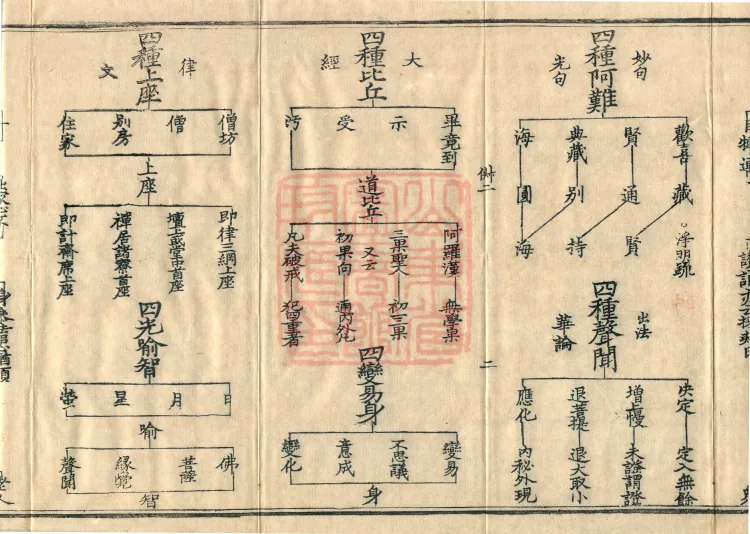 四種阿難
妙句
光句
歡喜 賢 典藏 海
藏 通 別 圓
賢 持 海
浮明疏
四種聲聞
出法
華論
決定 定入無餘
增上慢 未證謂證
退菩提 退大取小
應化 內秘外現
二
四種比丘
大
經
畢竟到 示 受 污
道比丘
阿羅漢 無學果
三果聖人 初三果
又云
初果向 滿內外凡
凡夫破戒 犯四重者
四變易身
變易 不思議 意成 變化
身
四種上座
律
文
僧坊 僧 別房 住家
上座
即律三綱上座
壇上戒堂中首座
禪居諸寮首座
即計齋席上座
四光喻智
日 月 星 螢
喻
佛 菩薩 緣覺 聲聞
智